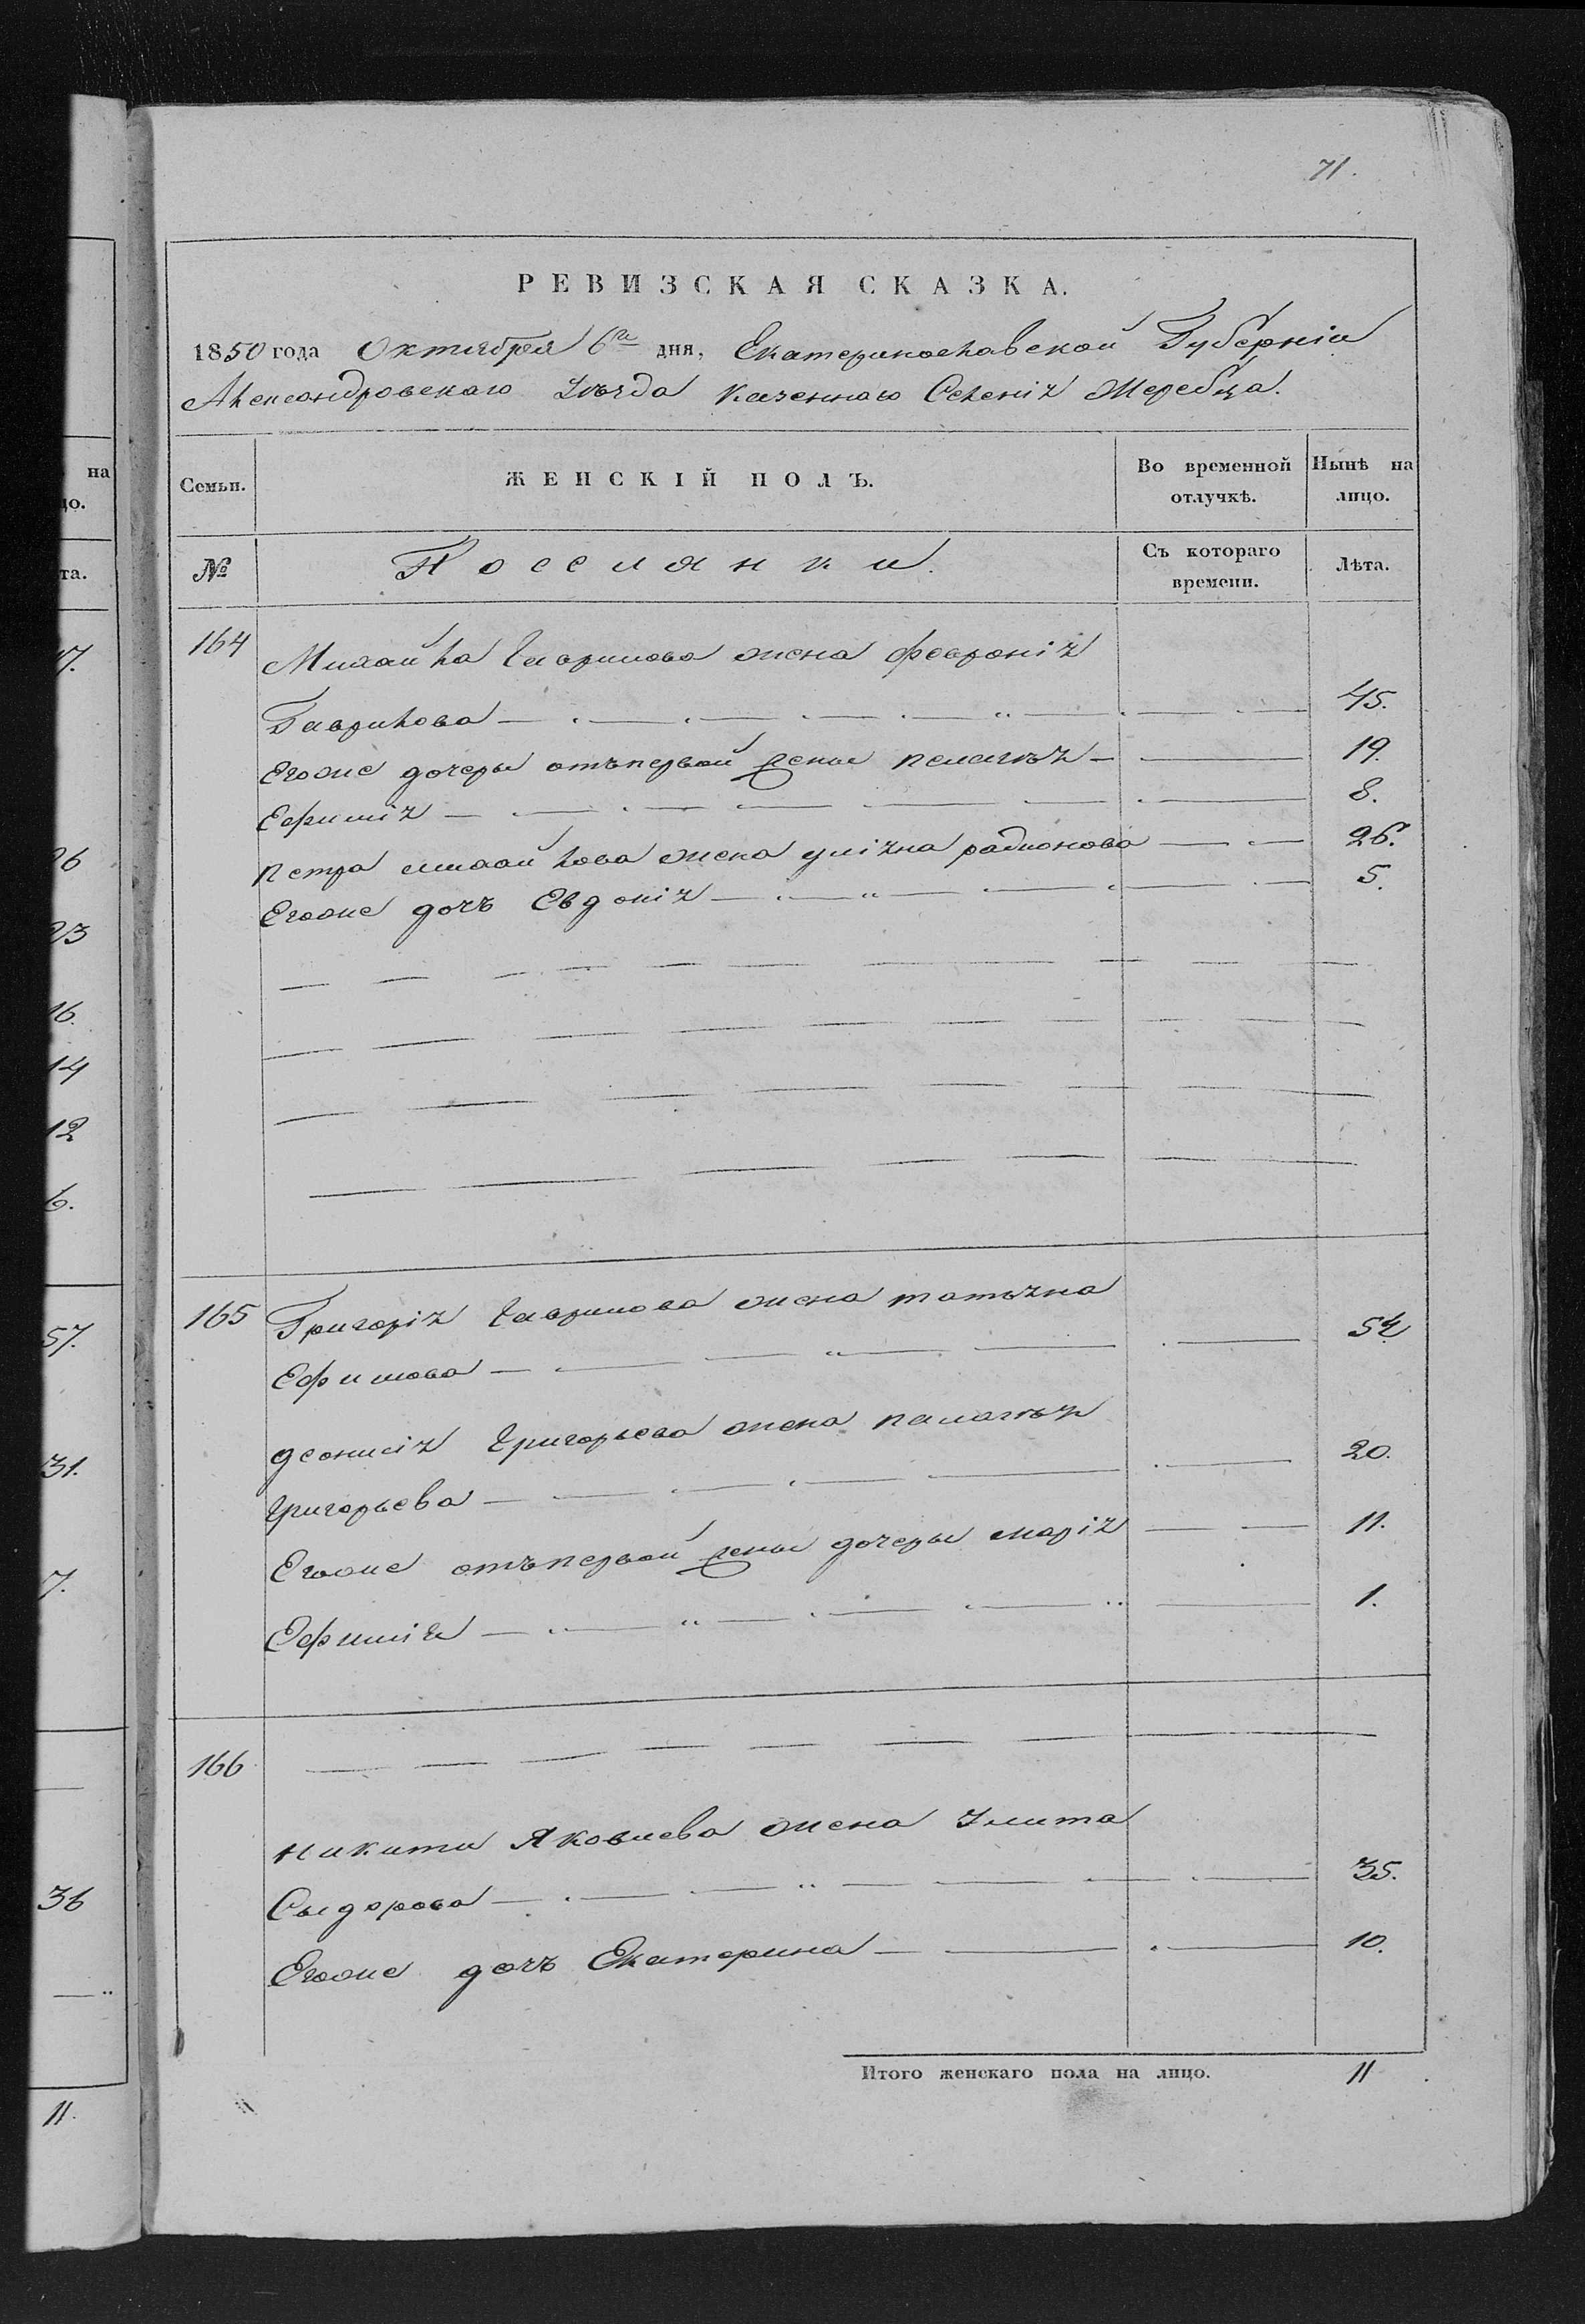 71.
РЕВИЗСКАЯ СКАЗКА.
1850 года Октября 6го дня, Екатеринославской Губерніи
Александровскаго Уѣзда казеннаго Селенія Жеребца.
Семьи.
ЖЕНСКІЙ ПОЛЪ.
Во временной отлучкѣ.
Нынѣ на лицо.
№
Поселянки.
Съ котораго времени.
Лѣта.
164 Михайла Гаврилова жена Феврония
Гаврилова 45.
Егоже дочеры отъ первой жены пелагѣя 19.
Ефимія 8.
петра михайлова жена улiяна радионова 26.
Егоже дочъ Евдокія 5.
165 Григорія Гаврилова жена татьяна
Ефимова 52
деонисія Григорьева жена палагѣя
Григорьева 20.
Егоже отъ первой жены дочеры марія 11.
Ефимія 1.
166
никиты Яковлева жена Улита
Сыдорова 35.
Егоже дочъ Екатерина 10.
Итого женскаго пола на лицо. 11
на
та.
26
23
16.
14
12
6.
57.
31.
7.
36
11.